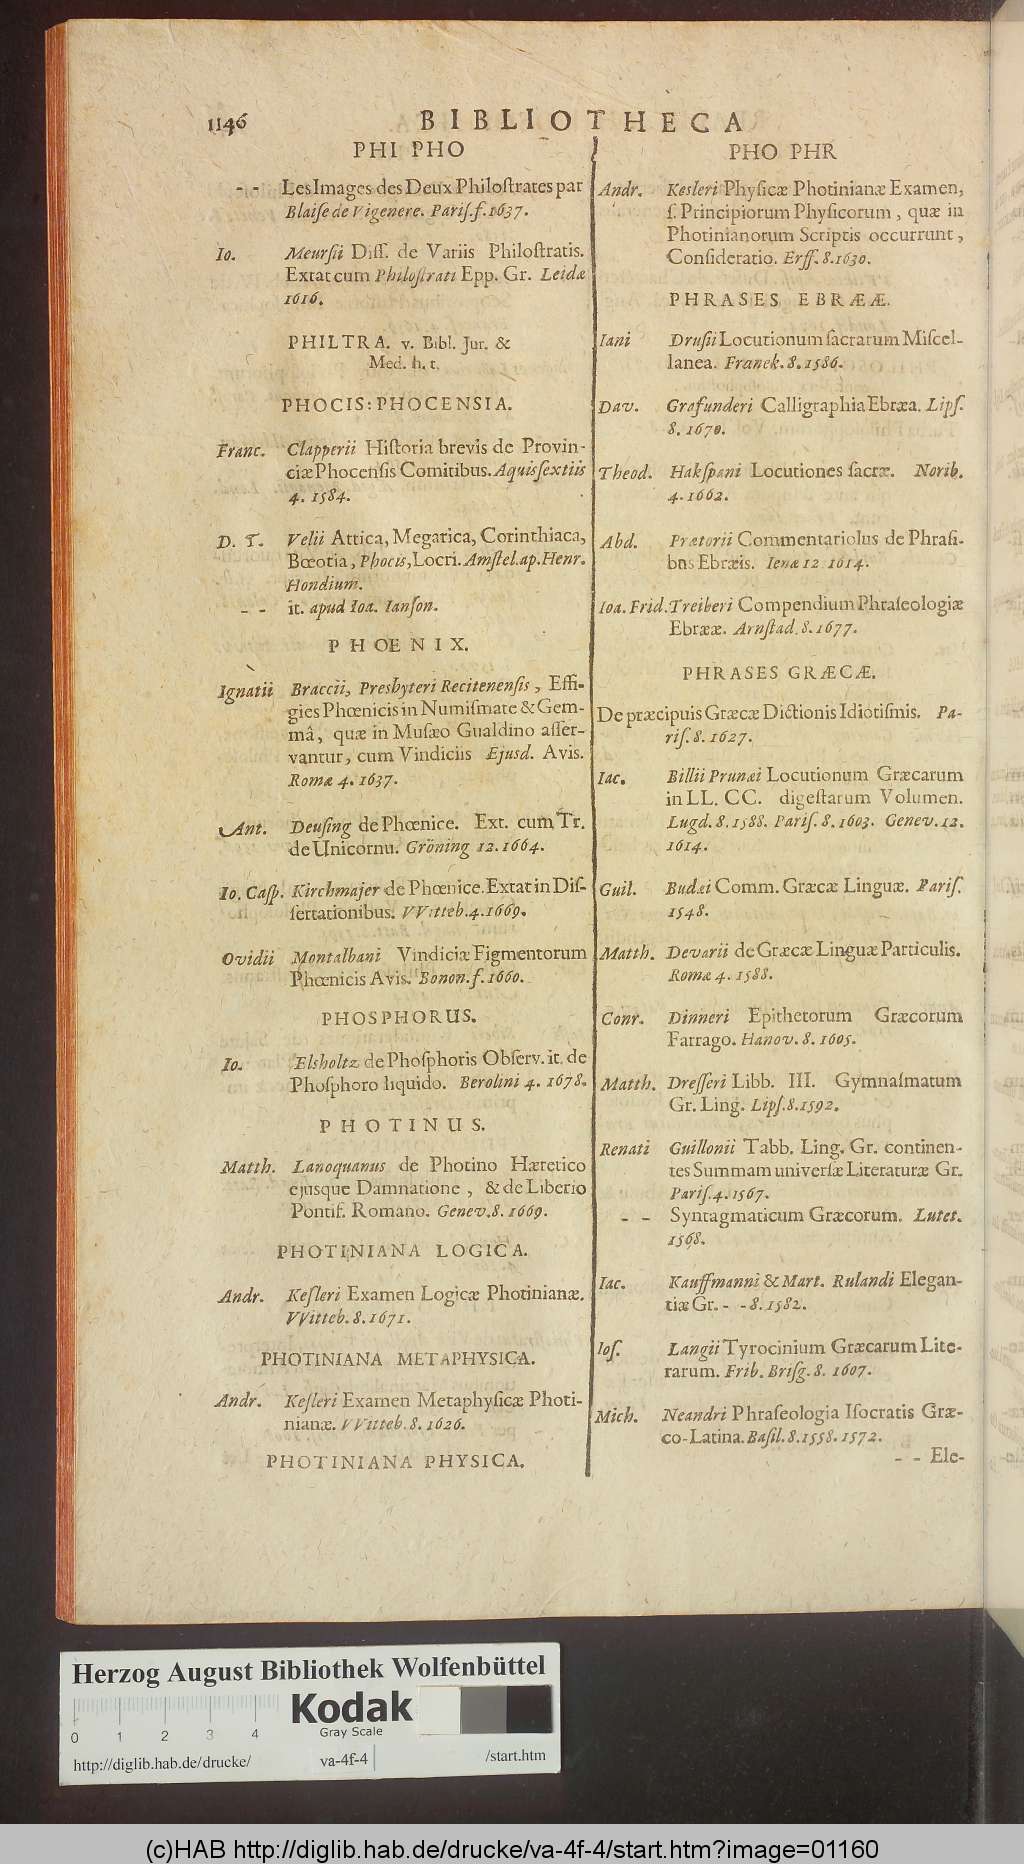 1146
BIBLIOTHECA
PHI PHO
- - Les Images des Deux Philoſtrates par
Blaiſe de Vigenere. Pariſ. f. 1637.
Io. Meurſii Diſſ. de Variis Philoſtratis.
Extat cum Philoſtrati Epp. Gr. Leidæ
1616.
PHILTRA. v. Bibl. Jur. &
Med. h. t.
PHOCIS: PHOCENSIA.
Franc. Clapperii Hiſtoria brevis de Provin-
ciæ Phocenſis Comitibus. Aquisſextiis
4. 1584.
D. T. Velii Attica, Megarica, Corinthiaca,
Bœotia, Phocis, Locri. Amſtel. ap. Henr.
Hondium.
- - it. apud Ioa. Ianſon.
PHOENIX.
Ignatii Braccii, Presbyteri Recitenenſis, Effi-
gies Phœnicis in Numiſmate & Gem-
mâ, quæ in Muſæo Gualdino aſſer-
vantur, cum Vindiciis Ejusd. Avis.
Romæ 4. 1637.
Ant. Deuſing de Phœnice. Ext. cum Tr.
de Unicornu. Gröning 12. 1664.
Io. Caſp. Kirchmajer de Phœnice. Extat in Diſ-
ſertationibus. VVitteb. 4. 1669.
Ovidii Montalbani Vindiciæ Figmentorum
Phœnicis Avis. Bonon. f. 1660.
PHOSPHORUS.
Io. Elsholtz de Phoſphoris Obſerv. it. de
Phoſphoro liquido. Berolini 4. 1678.
PHOTINUS.
Matth. Lanoquanus de Photino Hæretico
ejusque Damnatione, & de Liberio
Pontif. Romano. Genev. 8. 1669.
PHOTINIANA LOGICA.
Andr. Keſleri Examen Logicæ Photinianæ.
VVitteb. 8. 1671.
PHOTINIANA METAPHYSICA.
Andr. Keſleri Examen Metaphyſicæ Photi-
nianæ. VVitteb. 8. 1626.
PHOTINIANA PHYSICA.
PHO PHR
Andr. Kesleri Phyſicæ Photinianæ Examen,
ſ. Principiorum Phyſicorum, quæ in
Photinianorum Scriptis occurrunt,
Conſideratio. Erff. 8. 1630.
PHRASES EBRÆÆ.
Iani Druſii Locutionum ſacratum Miſcel-
lanea. Franek. 8. 1586.
Dav. Grafunderi Calligraphia Ebræa. Lipſ.
8. 1670.
Theod. Hakſpani Locutiones ſacræ. Norib.
4. 1662.
Abd. Prætorii Commentariolus de Phraſi-
bns Ebræis. Ienæ 12 1614.
Ioa. Frid. Treiberi Compendium Phraſeologiæ
Ebrææ. Arnſtad. 8. 1677.
PHRASES GRÆCÆ.
De præcipuis Græcæ Dictionis Idiotiſmis. Pa-
riſ. 8. 1627.
Iac. Billii Prunæi Locutionum Græcarum
in LL. CC. digeſtarum Volumen.
Lugd. 8. 1588. Pariſ. 8. 1603. Genev. 12.
1614.
Guil. Budæi Comm. Græcæ Linguæ. Pariſ.
1548.
Matth. Devarii de Græcæ Linguæ Particulis.
Romæ 4. 1588.
Conr. Dinneri Epithetorum Græcorum
Farrago. Hanov. 8. 1605.
Matth. Dreſſeri Libb. III. Gymnaſmatum
Gr. Ling. Lipſ. 8. 1592.
Renati Guillonii Tabb. Ling. Gr. continen-
tes Summam univerſæ Literaturæ Gr.
Pariſ. 4. 1567.
- - Syntagmaticum Græcorum. Lutet.
1568.
Iac. Kauffmanni & Mart. Rulandi Elegan-
tiæ Gr. - - 8. 1582.
Ioſ. Langii Tyrocinium Græcarum Lite-
rarum. Frib. Briſg. 8. 1607.
Mich. Neandri Phraſeologia Iſocratis Græ-
co-Latina. Baſil. 8. 1558. 1572.
- - Ele-
Herzog August Bibliothek Wolfenbüttel
0 1 2 3 4
Kodak
Gray Scale
http://diglib.hab.de/drucke/ va-4f-4 /start.htm
(c)HAB http://diglib.hab.de/drucke/va-4f-4/start.htm?image=01160